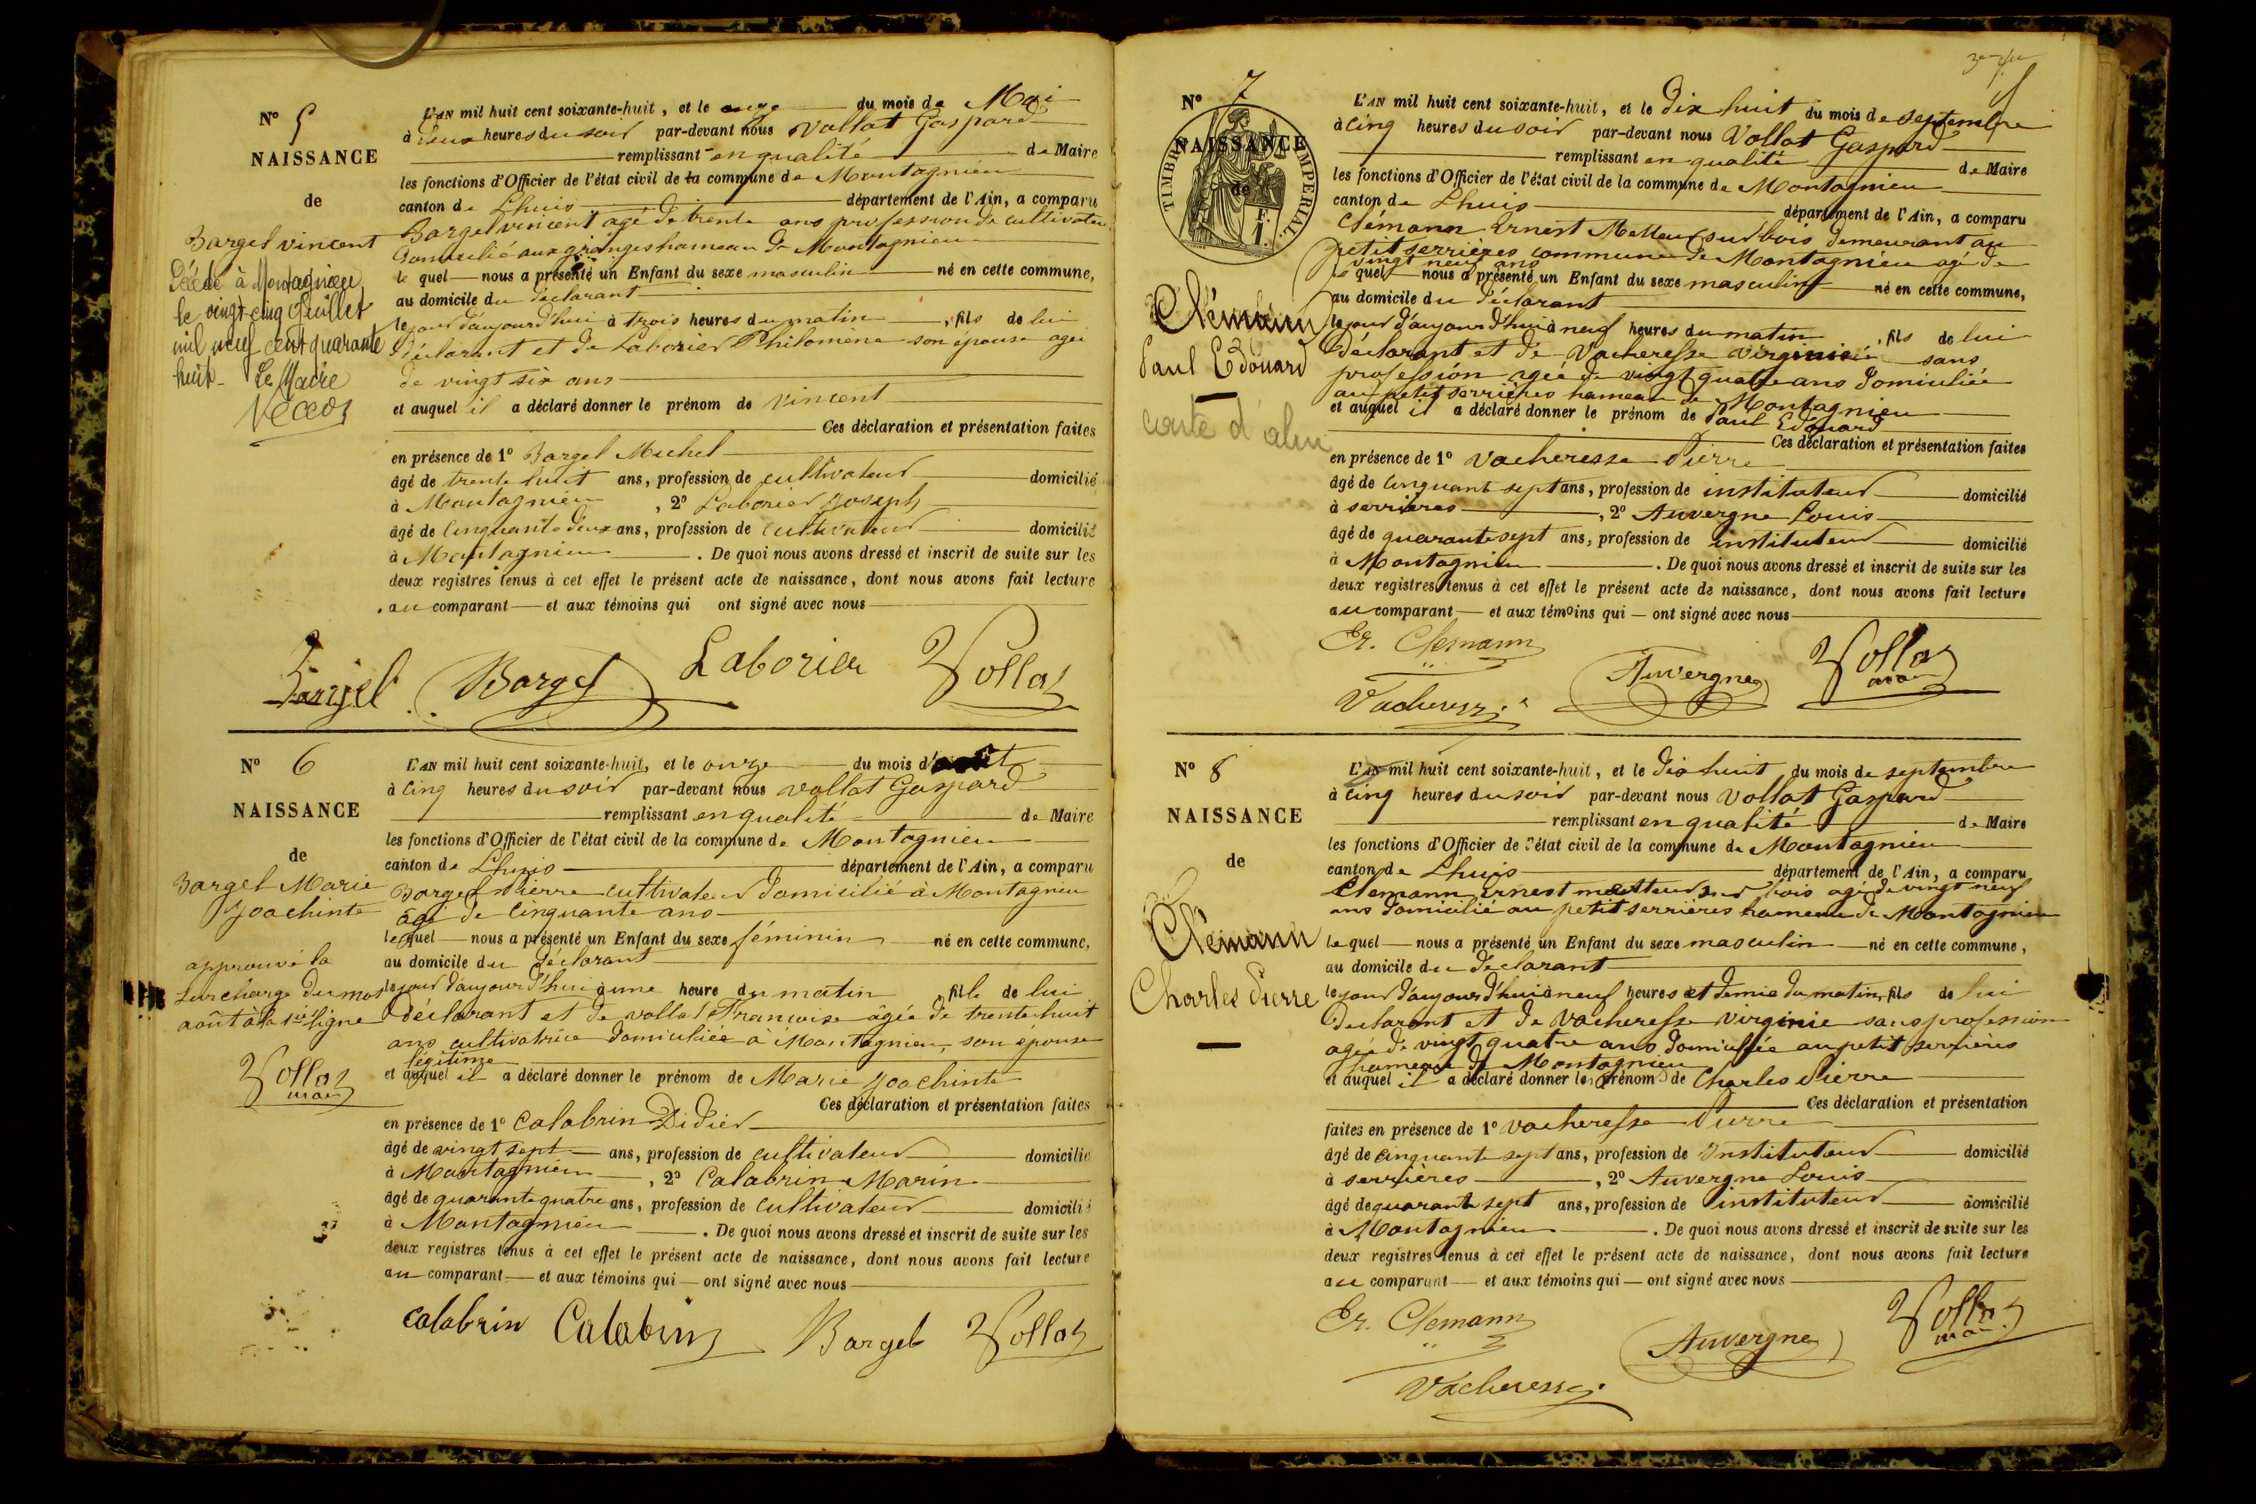 N° 5
NAISSANCE
de
Bargel vincent
Décédé à Montagnieu
le vingt-cinq Juillet
mil neuf cent quarante
huit - Le Maire
L'AN mil huit cent soixante-huit, et le onze du mois de Mai
à deux heures du soir par-devant nous Vollat Gaspard
remplissant en qualité de Maire
les fonctions d'Officier de l'état civil de la commune de Montagnieu
canton de Lhuis département de l'Ain, a comparu
Bargel vincent agé de trente ans profession de cultivateur
domicilié aux granges hameau de Montagnieu
le quel nous a présenté un Enfant du sexe masculin né en cette commune,
au domicile du déclarant
le jour d'aujourd'hui à trois heures du matin, fils de lui
déclarant et de Laborier Philomène son épouse agée
de vingt six ans
et auquel il a déclaré donner le prénom de vincent
Ces déclaration et présentation faites
en présence de 1° Bargel Michel
âgé de trente huit ans, profession de cultivateur domicilié
à Montagnieu, 2° Laborier Joseph
âgé de cinquante deux ans, profession de cultivateur domicilié
à Montagnieu. De quoi nous avons dressé et inscrit de suite sur les
deux registres tenus à cet effet le présent acte de naissance, dont nous avons fait lecture
au comparant et aux témoins qui ont signé avec nous
Bargel Bargel Laborier Vollat
N° 6
NAISSANCE
de
Bargel Marie
Joachinte
approuvé la
surcharge du mot
août à la 1ère ligne
Vollat
maire
L'AN mil huit cent soixante-huit, et le onze du mois d'août
à cinq heures du soir par-devant nous Vollat Gaspard
remplissant en qualité de Maire
les fonctions d'Officier de l'état civil de la commune de Montagnieu
canton de Lhuis département de l'Ain, a comparu
Bargel Pierre cultivateur domicilié à Montagnieu
agé de cinquante ans
le quel nous a présenté un Enfant du sexe féminin né en cette commune,
au domicile du déclarant
le jour d'aujourd'hui à une heure du matin, fille de lui
déclarant et de vollat Françoise agée de trente huit
ans cultivatrice domiciliée à Montagnieu, son épouse
légitime
et auquel il a déclaré donner le prénom de Marie Joachinte
Ces déclaration et présentation faites
en présence de 1° Calabrin Didier
âgé de vingt sept ans, profession de cultivateur domicilié
à Montagnieu, 2° Calabrin Marin
âgé de quarante quatre ans, profession de cultivateur domicilié
à Montagnieu. De quoi nous avons dressé et inscrit de suite sur les
deux registres tenus à cet effet le présent acte de naissance, dont nous avons fait lecture
au comparant et aux témoins qui ont signé avec nous
calabrin Calabrin Bargel Vollat
N° 7
NAISSANCE
de
TIMBRE IMPERIAL
1 F.
Clémann
Paul Edouard
L'AN mil huit cent soixante-huit, et le dix huit du mois de septembre
à cinq heures du soir par-devant nous Vollat Gaspard
remplissant en qualité de Maire
les fonctions d'Officier de l'état civil de la commune de Montagnieu
canton de Lhuis département de l'Ain, a comparu
Clémann Ernest Metteur sur bois demeurant au
petit serrières commune de Montagnieu agé de
vingt neuf ans
le quel nous a présenté un Enfant du sexe masculin né en cette commune,
au domicile du déclarant
le jour d'aujourd'hui à neuf heures du matin, fils de lui
déclarant et de Vacheresse Virginie sans
profession agée de vingt quatre ans domiciliée
au petit serrières hameau de Montagnieu
et auquel il a déclaré donner le prénom de Paul Edouard
Ces déclaration et présentation faites
en présence de 1° Vacheresse Pierre
âgé de cinquant sept ans, profession de instituteur domicilié
à serrières, 2° Auvergne Louis
âgé de quarante sept ans, profession de instituteur domicilié
à Montagnieu. De quoi nous avons dressé et inscrit de suite sur les
deux registres tenus à cet effet le présent acte de naissance, dont nous avons fait lecture
au comparant et aux témoins qui ont signé avec nous
Er. Clemann
Vacheresse Auvergne Vollat
maire
N° 8
NAISSANCE
de
Clémann
Charles Pierre
L'AN mil huit cent soixante-huit, et le dix huit du mois de septembre
à cinq heures du soir par-devant nous Vollat Gaspard
remplissant en qualité de Maire
les fonctions d'Officier de l'état civil de la commune de Montagnieu
canton de Lhuis département de l'Ain, a comparu
Clemann Ernest metteur sur bois agé de vingt neuf
ans domicilié au petit serrières hameau de Montagnieu
le quel nous a présenté un Enfant du sexe masculin né en cette commune,
au domicile du déclarant
le jour d'aujourd'hui à neuf heures et demie du matin, fils de lui
déclarant et de Vacheresse Virginie sans profession
agée de vingt quatre ans domiciliée au petit serrières
hameau de Montagnieu
et auquel il a déclaré donner les prénoms de Charles Pierre
Ces déclaration et présentation
faites en présence de 1° Vacheresse Pierre
âgé de cinquante sept ans, profession de Instituteur domicilié
à serrières, 2° Auvergne Louis
âgé de quarante sept ans, profession de instituteur domicilié
à Montagnieu. De quoi nous avons dressé et inscrit de suite sur les
deux registres tenus à cet effet le présent acte de naissance, dont nous avons fait lecture
au comparant et aux témoins qui ont signé avec nous
Er. Clemann Auvergne Vollat
maire
Vacheresse